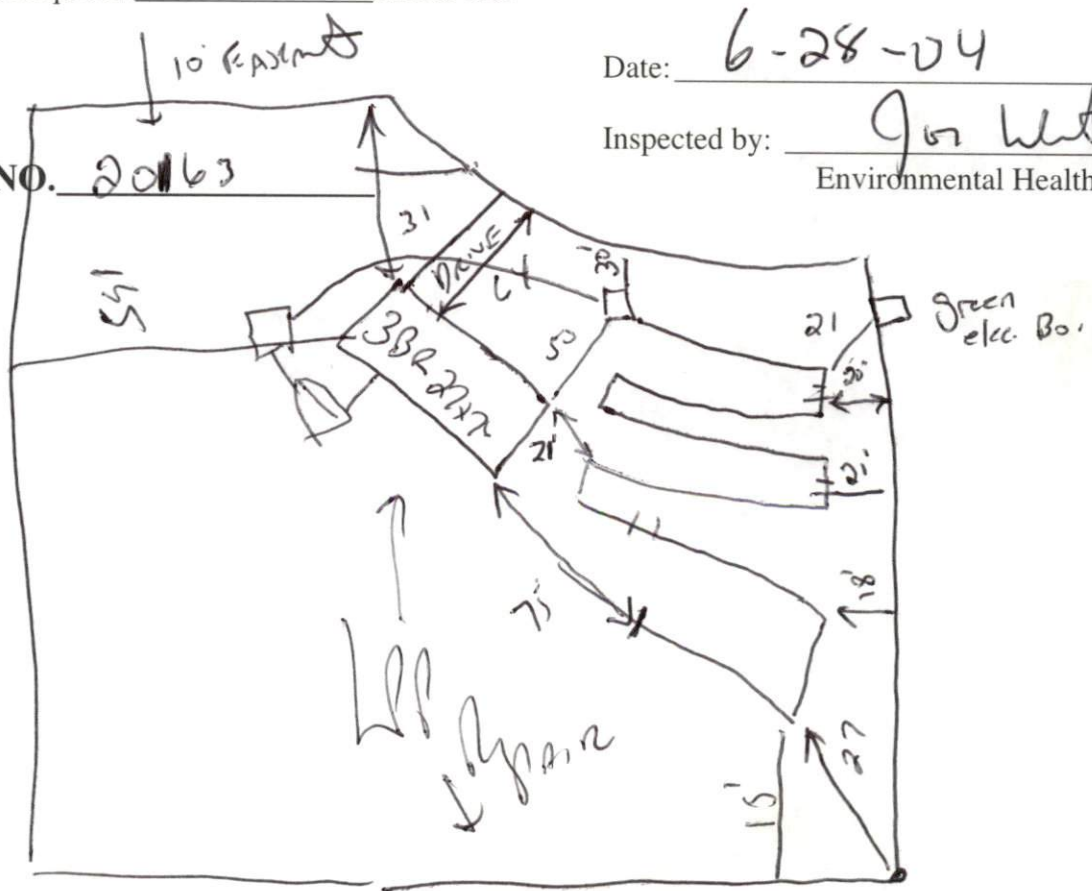 10' Easmt
Date: 6-28-04
Inspected by:
Environmental Health
NO. 20163
31
DRIVE
30'
21
green
elec. Bo.
3BR
20'
21'
21'
18'
75'
LPP
Repair
27
15'